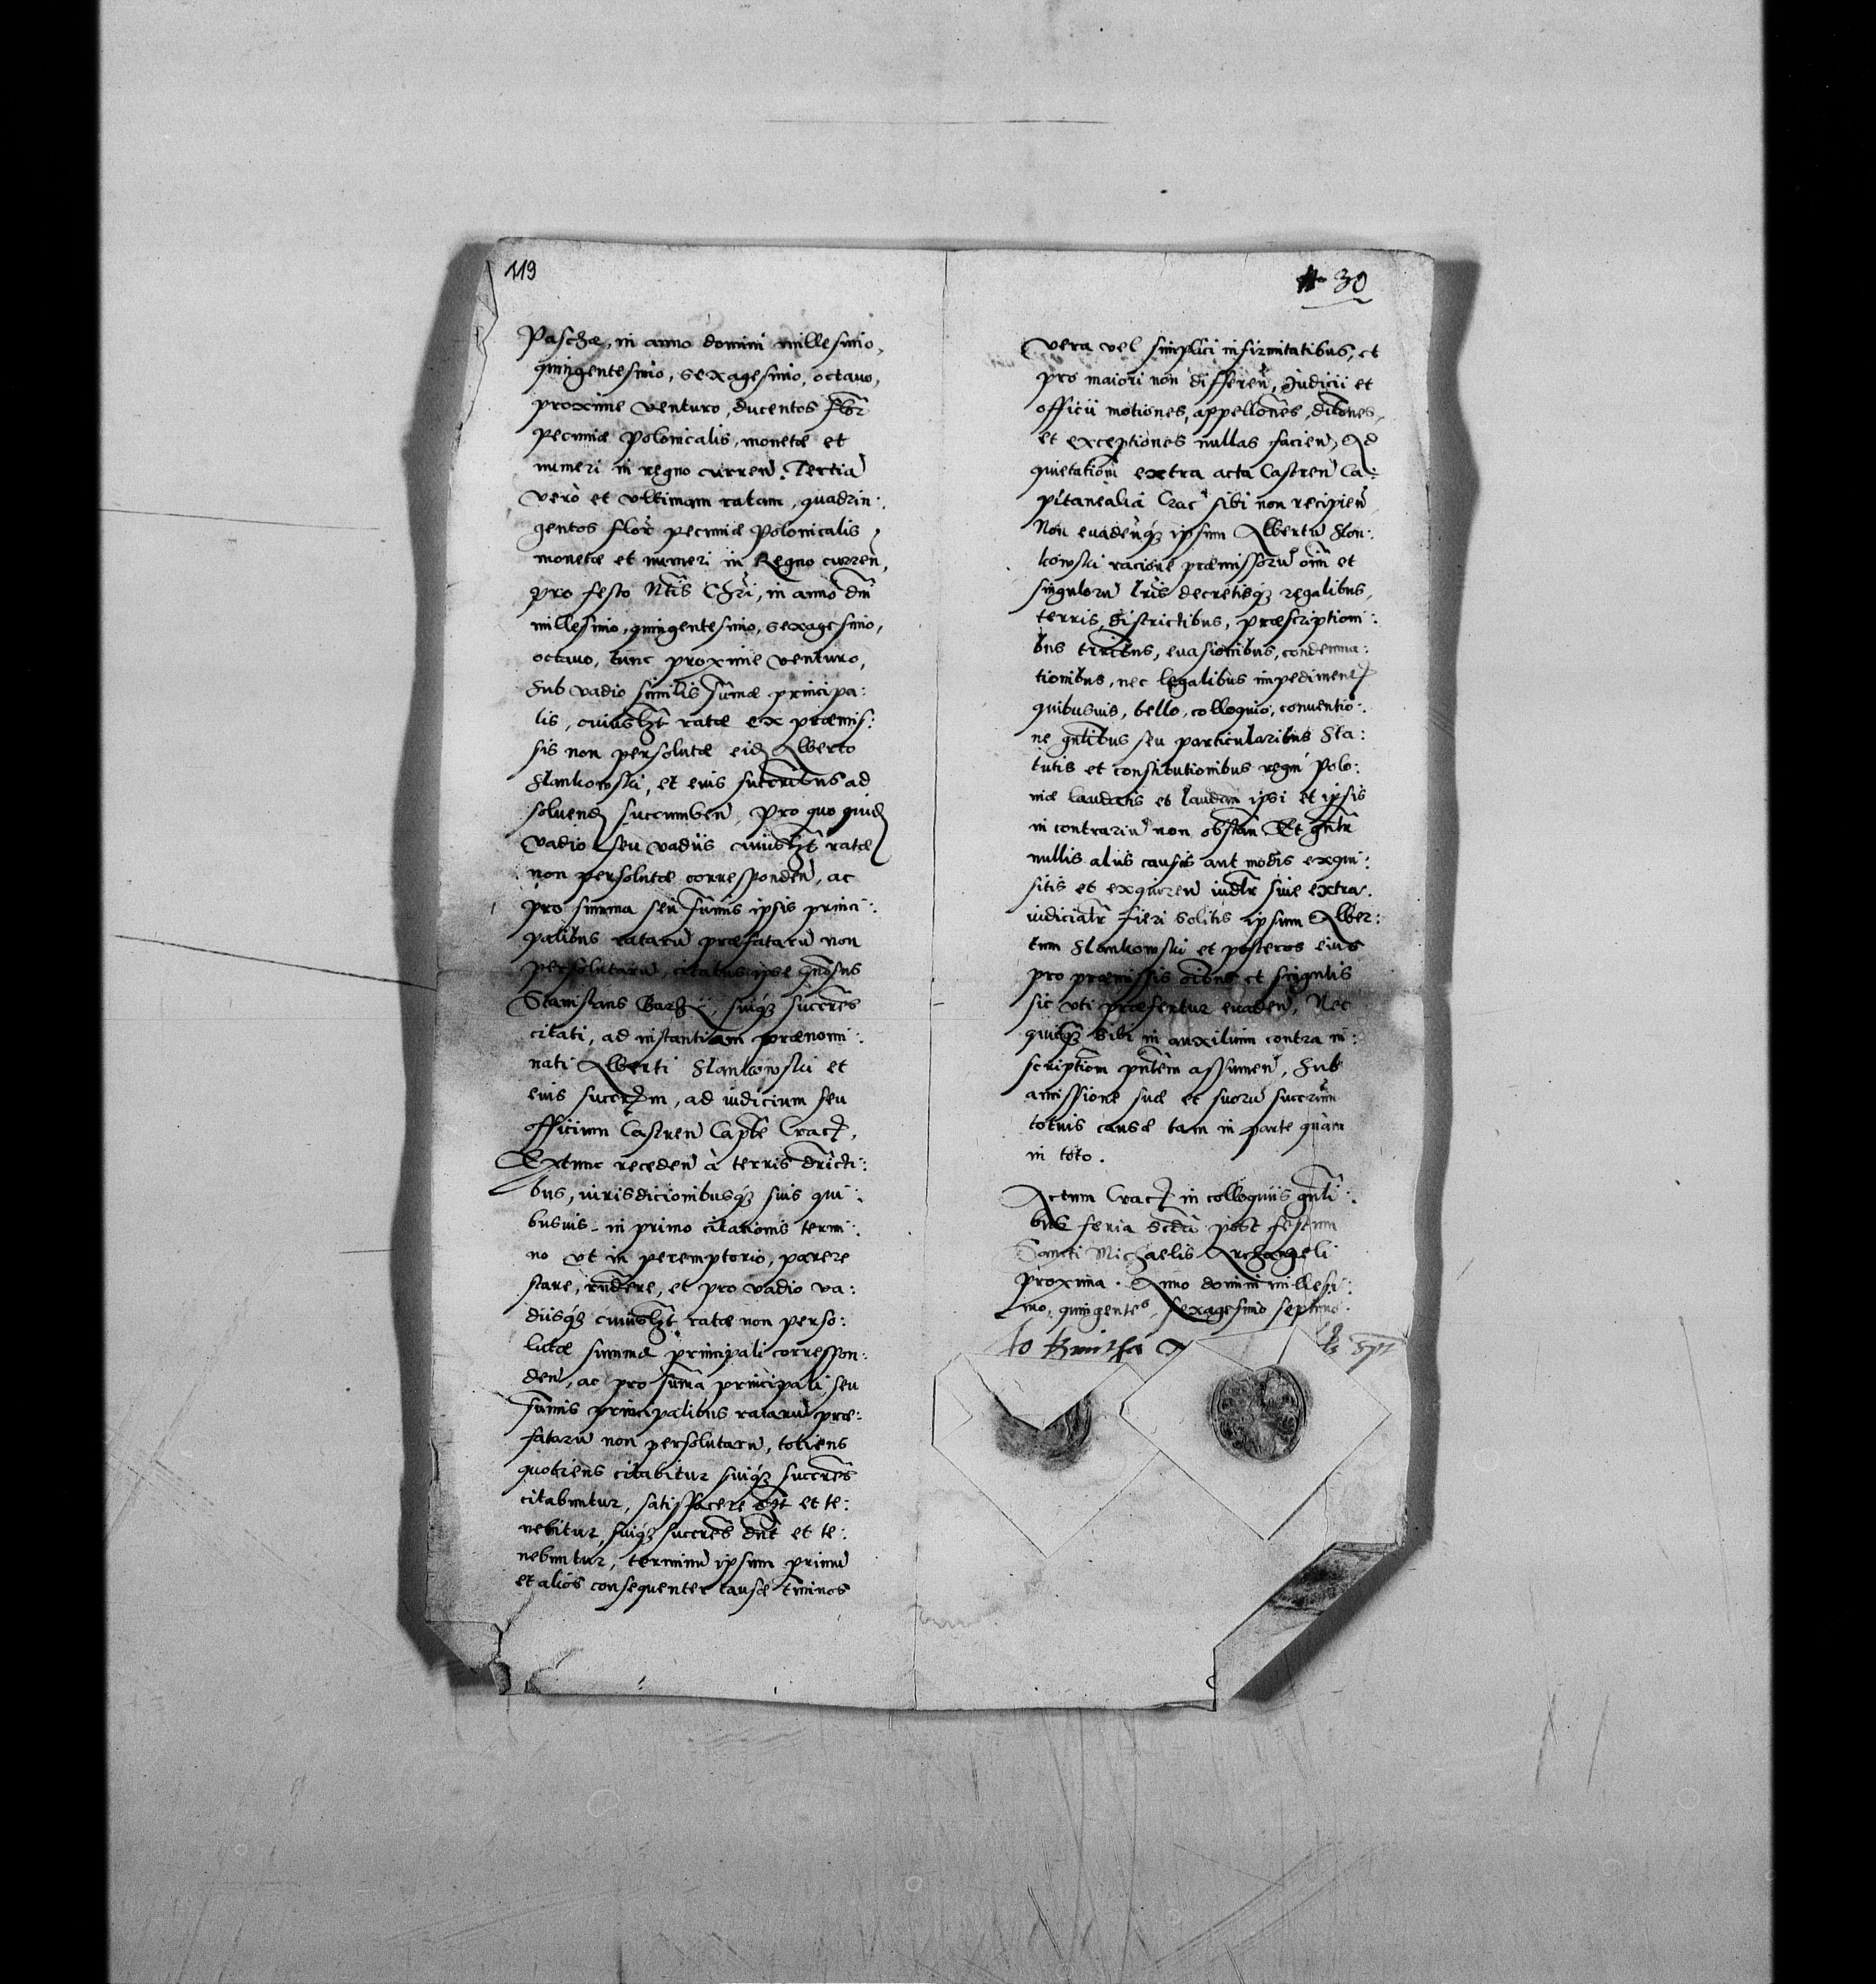 119
Paschæ, in anno domini millesimo,
quingentesimo, sexagesimo, octauo,
proxime venturo, ducentos flor̃
pecuniæ polonicalis, monetæ et
numeri in regno curreñ. Tertiã
verò et vltimam ratam, quadrin:
gentos flor̃ pecuniæ polonicalis,
monetæ et numeri in Regno curreñ,
pro festo Ntĩs Chri, in anno dni
millesimo, quingentesimo, sexagesimo,
octauo, tunc proxime venturo,
sub vadio similis sũmæ principa:
lis, cuiuslĩt ratæ ex præmis:
sis non persolutæ eid Alberto
Slankowski, et eius succribus ad
soluend succumbeñ, pro quo quid
vadio seu vadiis cuiuslĩt ratæ
non persolutæ correspondeñ, ac
pro summa seu sũmis ipsis princi:
palibus ratarũ præfatarũ non
persolutarũ, citatus ipse gnosus
Stanislaus Barzii, suiqz succres
citati, ad instantiam prænomi:
nati Alberti Slankowski et
eius succrum, ad iudicium seu
officium Castreñ Capte Crac,
Extunc recedeñ à terris dricti:
bus, iurisdicionibusqz suis qui:
busuis in primo citationis termi:
no vt in peremptorio, parere
stare, rñdere, et pro vadio va:
diisqz cuiuslĩt ratæ non perso:
lutæ summæ principali correspon:
deñ, ac pro sũma principali seu
sũmis principalibus ratarũ præ:
fatarũ non persolutarũ, totiens
quotiens citabitur suiqz succres
citabuntur, satisfacere dẽt et te:
nebitur, suiqz succres dñt et te:
nebuntur, terminũ ipsum primũ
et alios consequenter causæ tminos
30
vera vel simplici infirmitatibus, et
pro maiori non differeñ, Judicii et
officii motiones, appellones, dilones,
et exceptiones nullas facieñ, Ad
quietationi extra acta Castreñ Ca:
pitanealia Crac sibi non recipieñ
Non euadeñqz ipsum Albertũ Slan:
kowski racione præmissorũ oim et
singulorũ lris decretisqz regalibus,
terris, districtibus, præscriptioni:
bus, euasionibus, condemna:
tionibus, nec legalibus impediment
quibusuis, bello, colloquio, conuentio:
ne gnlibus seu particularibus Sta:
tutis et constitutionibus regni Polo:
niæ laudatis et laudan ipsi et ipsis
in contrariũ non obstañ Et gnlr
nullis aliis causis aut modis exqui:
sitis et exquireñ iudlr siue extra:
iudicialr fieri solitis ipsum Alber:
tum Slankowski et posteros eius
pro præmissis oibus et singulis
sic vti præfertur euadeñ, Nec
quitqz sibi in auxilium contra in:
scriptiom pntem assumeñ, Sub
amissione suæ et suorũ succrum
totius causæ tam in parte quàm
in toto.
Actum Crac in colloquiis gnli:
bus feria scda post festum
Sancti Michaelis Archangeli
proxima. Anno domini millesi:
mo, quingentes, sexagesimo septimo.